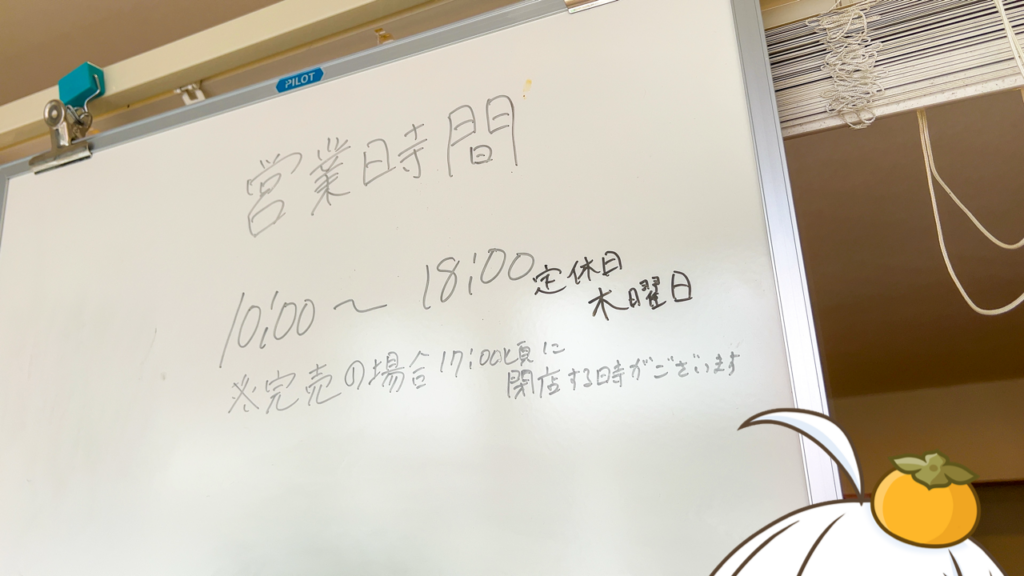 PILOT
営業時間
10:00 ~ 18:00
定休日
木曜日
※完売の場合17:00頃に
閉店する時がございます